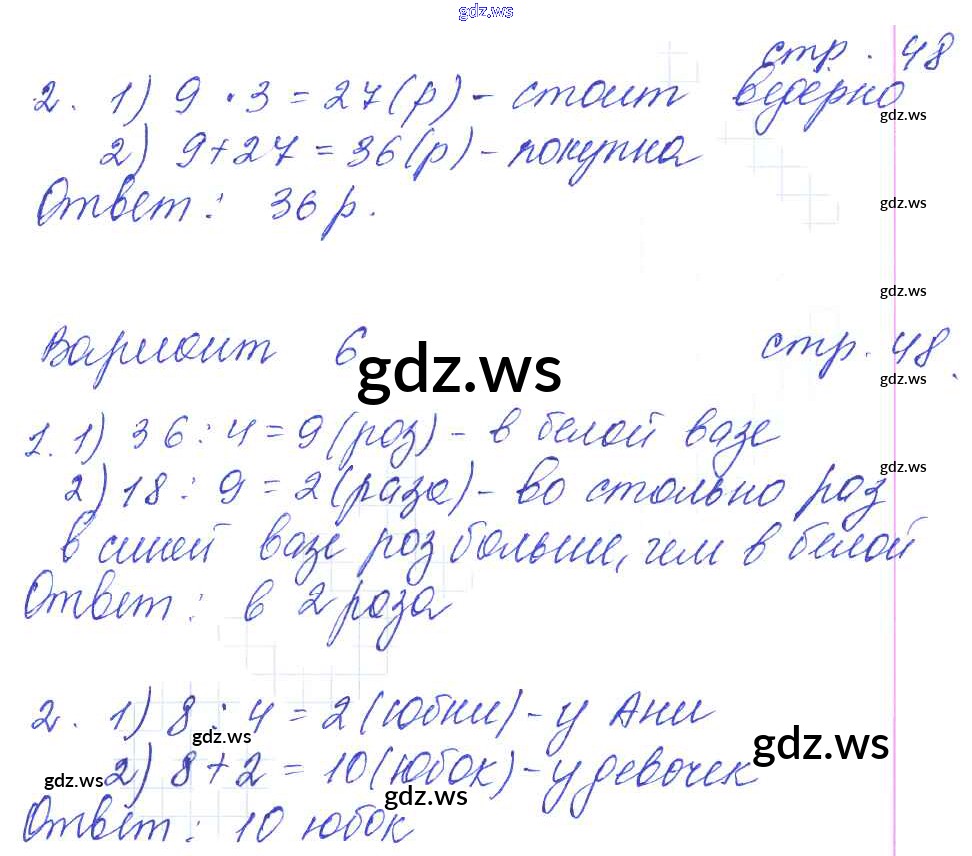 gdz.ws
стр. 48
2. 1) 9 · 3 = 27 (р) - стоит ведёрко
gdz.ws
2) 9 + 27 = 36 (р) - покупка
Ответ: 36 р.
gdz.ws
gdz.ws
Вариант 6 стр. 48.
gdz.ws
gdz.ws
1. 1) 36 : 4 = 9 (роз) - в белой вазе
gdz.ws
2) 18 : 9 = 2 (раза) - во столько раз
в синей вазе роз больше, чем в белой
Ответ: в 2 раза
2. 1) 8 : 4 = 2 (юбки) - у Ани
gdz.ws
gdz.ws
2) 8 + 2 = 10 (юбок) - у девочек
gdz.ws
gdz.ws
Ответ: 10 юбок